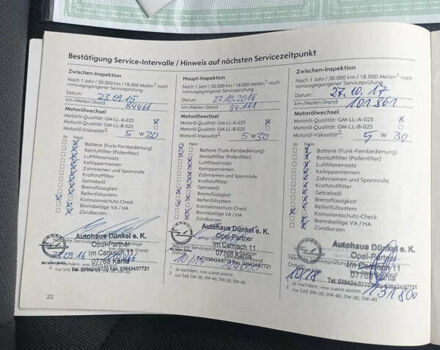 Bestätigung Service-Intervalle / Hinweis auf nächsten Servicezeitpunkt
Zwischen-Inspektion
Nach 1 Jahr / 30.000 km / 18.000 Meilen¹ nach
vorausgegangener Serviceprüfung
Datum 23.09.15
km-/Meilen-Stand
Motorölwechsel
Motoröl-Qualität: GM-LL-A-025 x
Motoröl-Qualität: GM-LL-B-025
Motoröl-Viskosität² 5 W 30
Ja Nein
Batterie (Funk-Fernbedienung)
Reinluftfilter (Pollenfilter)
Luftfiltereinsatz
Keilrippenriemen
Zahnriemen und Spannrolle
Kraftstofffilter
Getriebeöl
Bremsflüssigkeit
Reifenfüllsystem
Korrosionsschutz-Check
Bremsbeläge VA / HA
Zündkerzen
Autohaus Dünkel e. K.
Opel-Partner
Im Camisch 11
07768 Kahla
Tel. 036424/57721
22
Haupt-Inspektion
Nach 1 Jahr / 30.000 km / 18.000 Meilen¹ nach
vorausgegangener Serviceprüfung
Datum 27.10.2016
km-/Meilen-Stand 94.111
Motorölwechsel
Motoröl-Qualität: GM-LL-A-025 x
Motoröl-Qualität: GM-LL-B-025
Motoröl-Viskosität² 5 W 30
Ja Nein
Batterie (Funk-Fernbedienung)
Reinluftfilter (Pollenfilter)
Luftfiltereinsatz
Keilrippenriemen
Zahnriemen und Spannrolle
Kraftstofffilter
Getriebeöl
Bremsflüssigkeit
Reifenfüllsystem
Korrosionsschutz-Check
Bremsbeläge VA / HA
Zündkerzen
Autohaus Dünkel e. K.
Opel-Partner
Im Camisch 11
07768 Kahla
Tel. 036424/57721
Zwischen-Inspektion
Nach 1 Jahr / 30.000 km / 18.000 Meilen¹ nach
vorausgegangener Serviceprüfung
Datum 27.10.17
km-/Meilen-Stand 101861
Motorölwechsel
Motoröl-Qualität: GM-LL-A-025 x
Motoröl-Qualität: GM-LL-B-025
Motoröl-Viskosität² 5 W 30
Ja Nein
Batterie (Funk-Fernbedienung)
Reinluftfilter (Pollenfilter)
Luftfiltereinsatz
Keilrippenriemen
Zahnriemen und Spannrolle
Kraftstofffilter
Getriebeöl
Bremsflüssigkeit
Reifenfüllsystem
Korrosionsschutz-Check
Bremsbeläge VA / HA
Zündkerzen
Autohaus Dünkel e. K.
Opel-Partner
Im Camisch 11
07768 Kahla
Tel. 036424/57721
10/18 131800